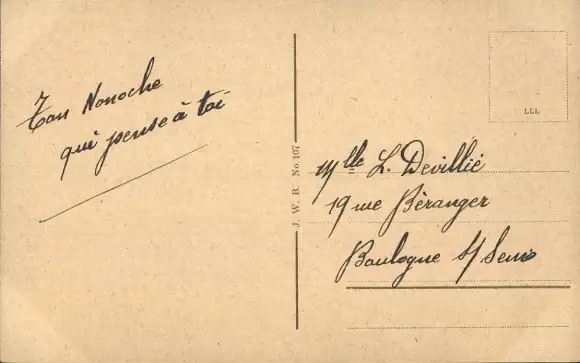 Ton Nonoche
qui pense à toi
J. W. B. No. 107
LLL
Mlle L. Devillié
19 rue Béranger
Boulogne s/ Seine